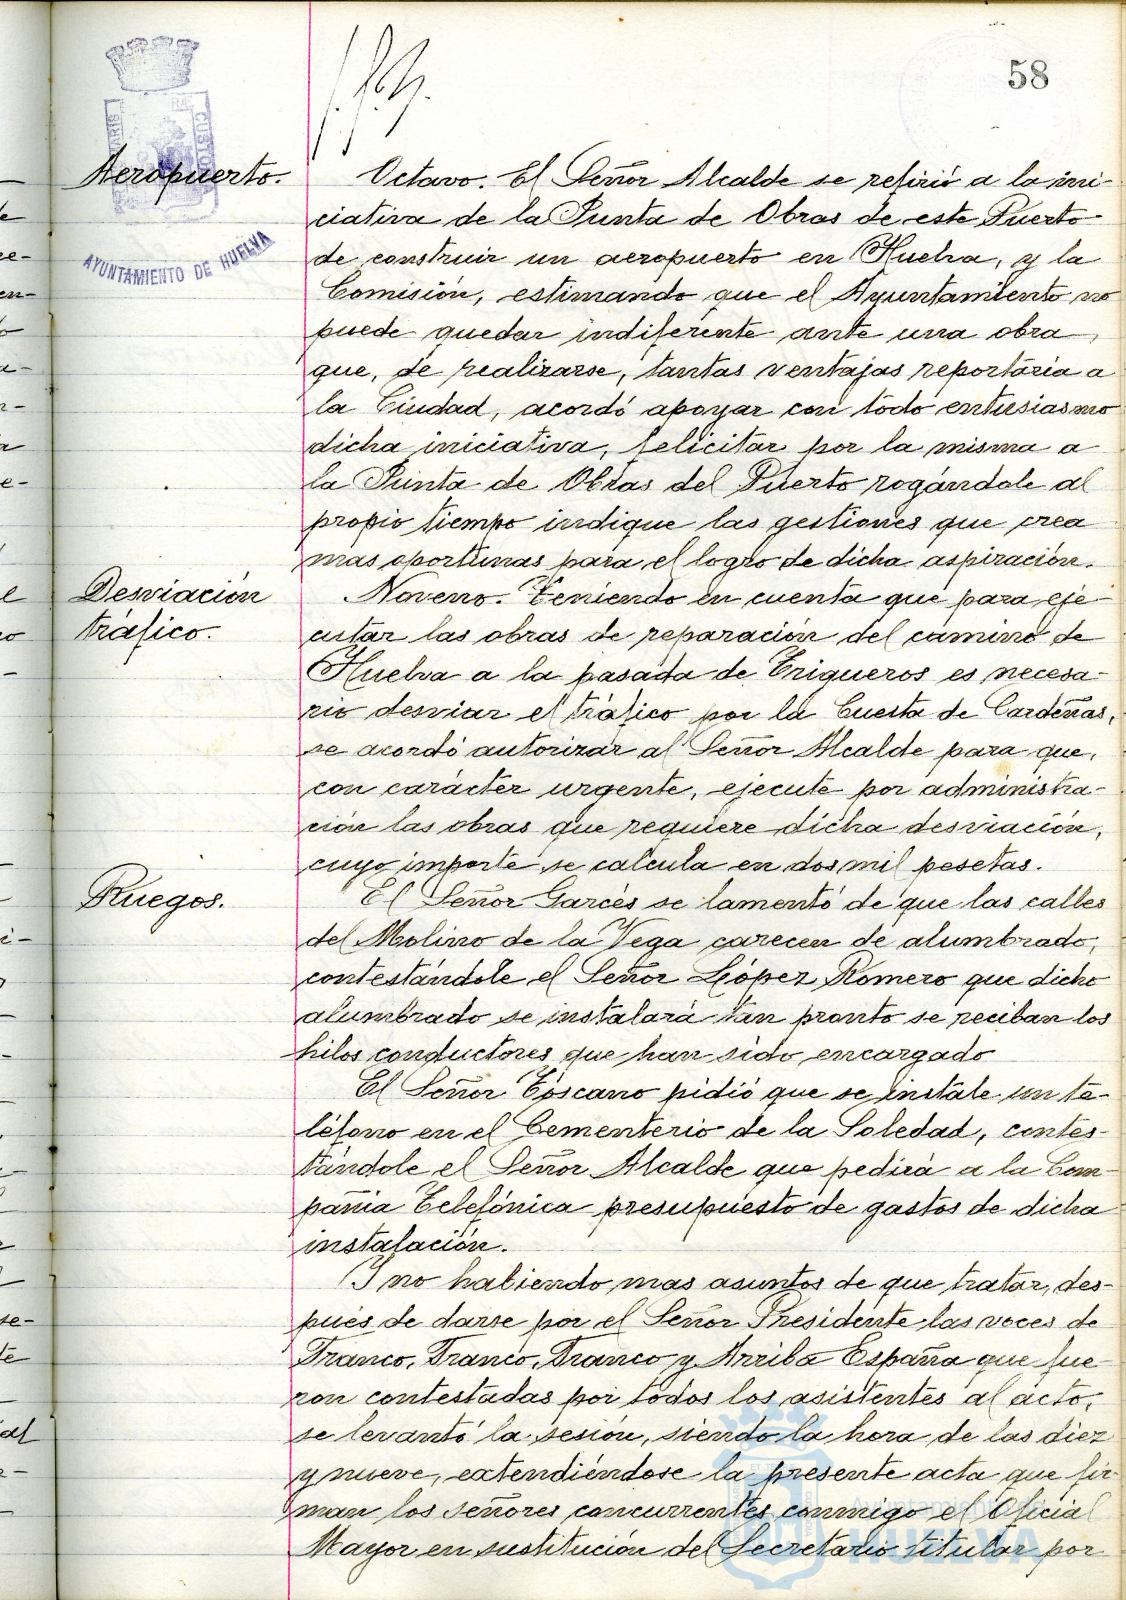 58
AYUNTAMIENTO DE HUELVA
Aeropuerto.
Octavo. El Señor Alcalde se refirió a la ini-
ciativa de la Junta de Obras de este Puerto
de construir un aeropuerto en Huelva, y la
Comisión, estimando que el Ayuntamiento no
puede quedar indiferente ante una obra
que, de realizarse, tantas ventajas reportaria a
la Ciudad, acordó apoyar con todo entusiasmo
dicha iniciativa, felicitar por la misma a
la Junta de Obras del Puerto rogándole al
propio tiempo indique las gestiones que crea
mas oportunas para el logro de dicha aspiración.
Desviación
tráfico.
Noveno. Teniendo en cuenta que para eje-
cutar las obras de reparación del camino de
Huelva a la pasada de Trigueros es necesa-
rio desviar el tráfico por la Cuesta de Cardeñas,
se acordó autorizar al Señor Alcalde para que,
con carácter urgente, ejecute por administra-
ción las obras que requiere dicha desviación,
cuyo importe se calcula en dos mil pesetas.
Ruegos.
El Señor Garcés se lamentó de que las calles
del Molino de la Vega carecen de alumbrado,
contestándole el Señor López Romero que dicho
alumbrado se instalará tan pronto se reciban los
hilos conductores que han sido encargado
El Señor Toscano pidió que se instale un te-
léfono en el Cementerio de la Soledad, contes-
tándole el Señor Alcalde que pedirá a la Com-
pañia Telefónica presupuesto de gastos de dicha
instalación.
Y no habiendo mas asuntos de que tratar, des-
pués de darse por el Señor Presidente las voces de
Franco, Franco, Franco y Arriba España que fue-
ron contestadas por todos los asistentes al acto,
se levantó la sesión, siendo la hora de las diez
y nueve, extendiéndose la presente acta que fir-
man los señores concurrentes conmigo el Oficial
Mayor en sustitución del Secretario titular por
Ayuntamiento de
HUELVA